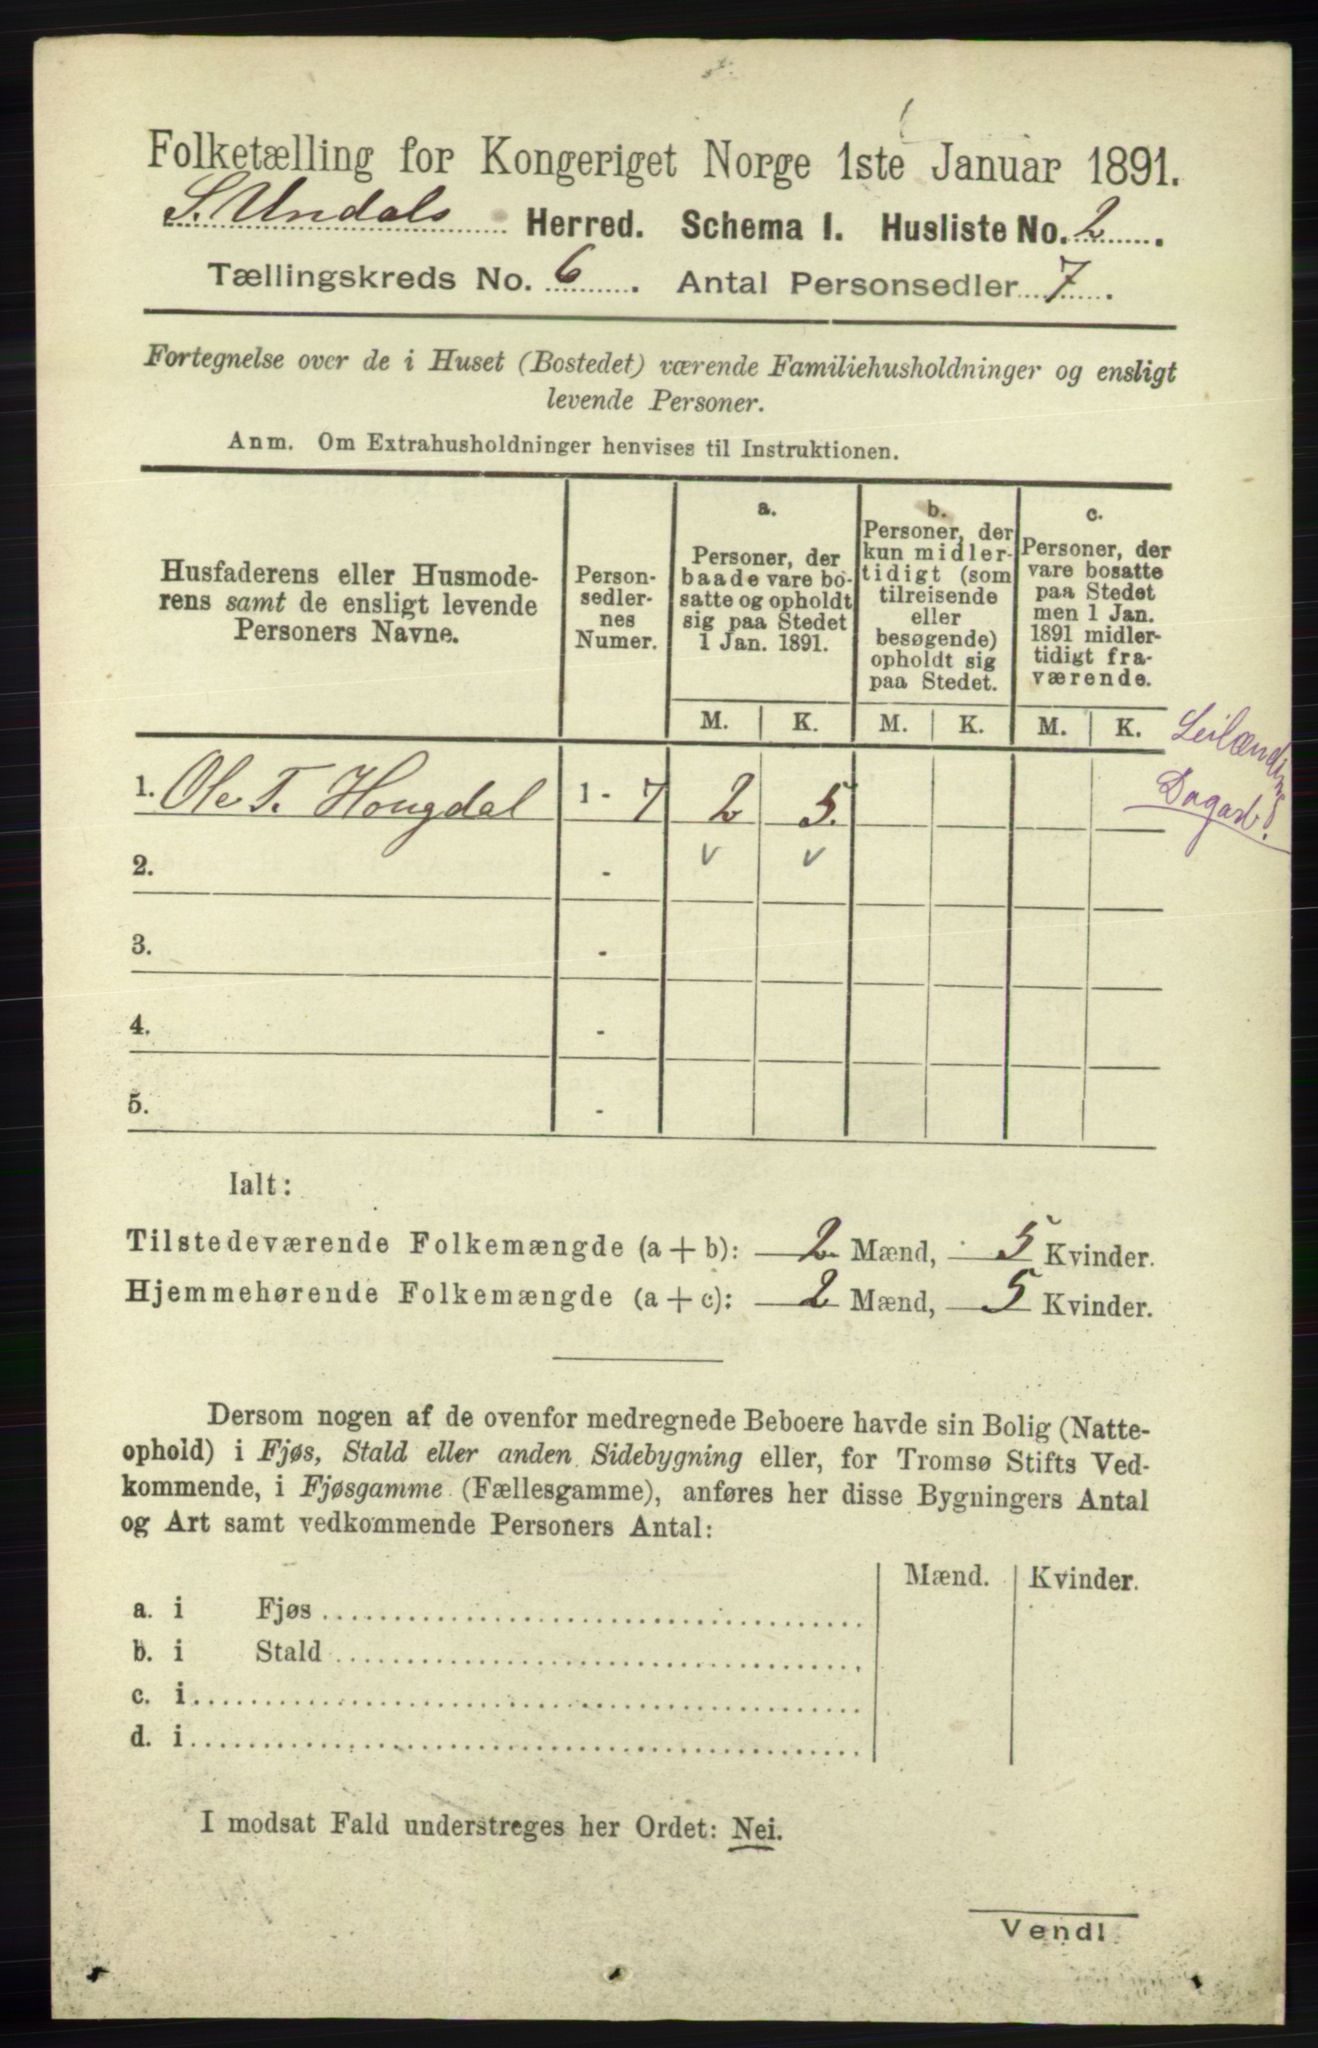 Folketælling for Kongeriget Norge 1ste Januar 1891.
S. Undals Herred. Schema I. Husliste No. 2.
Tællingskreds No. 6. Antal Personsedler 7.
Fortegnelse over de i Huset (Bostedet) værende Familiehusholdninger og ensligt
levende Personer.
Anm. Om Extrahusholdninger henvises til Instruktionen.
Husfaderens eller Husmode-
rens samt de ensligt levende
Personers Navne.
Person-
sedler-
nes
Numer.
a.
Personer, der
baade vare bo-
satte og opholdt
sig paa Stedet
1 Jan. 1891.
b.
Personer, der
kun midler-
tidigt (som
tilreisende
eller
besøgende)
opholdt sig
paa Stedet.
c.
Personer, der
vare bosatte
paa Stedet
men 1 Jan.
1891 midler-
tidigt fra-
værende.
M. K. M. K. M. K.
Leilænding
Dagarb.
1. Ole T. Hougdal 1 - 7 2 5.
2. - v v
3. -
4. -
5. -
Ialt:
Tilstedeværende Folkemængde (a + b): 2 Mænd, 5 Kvinder.
Hjemmehørende Folkemængde (a + c): 2 Mænd, 5 Kvinder.
Dersom nogen af de ovenfor medregnede Beboere havde sin Bolig (Natte-
ophold) i Fjøs, Stald eller anden Sidebygning eller, for Tromsø Stifts Ved-
kommende, i Fjøsgamme (Fællesgamme), anføres her disse Bygningers Antal
og Art samt vedkommende Personers Antal:
Mænd. Kvinder.
a. i Fjøs
b. i Stald
c. i
d. i
I modsat Fald understreges her Ordet: Nei.
Vend!